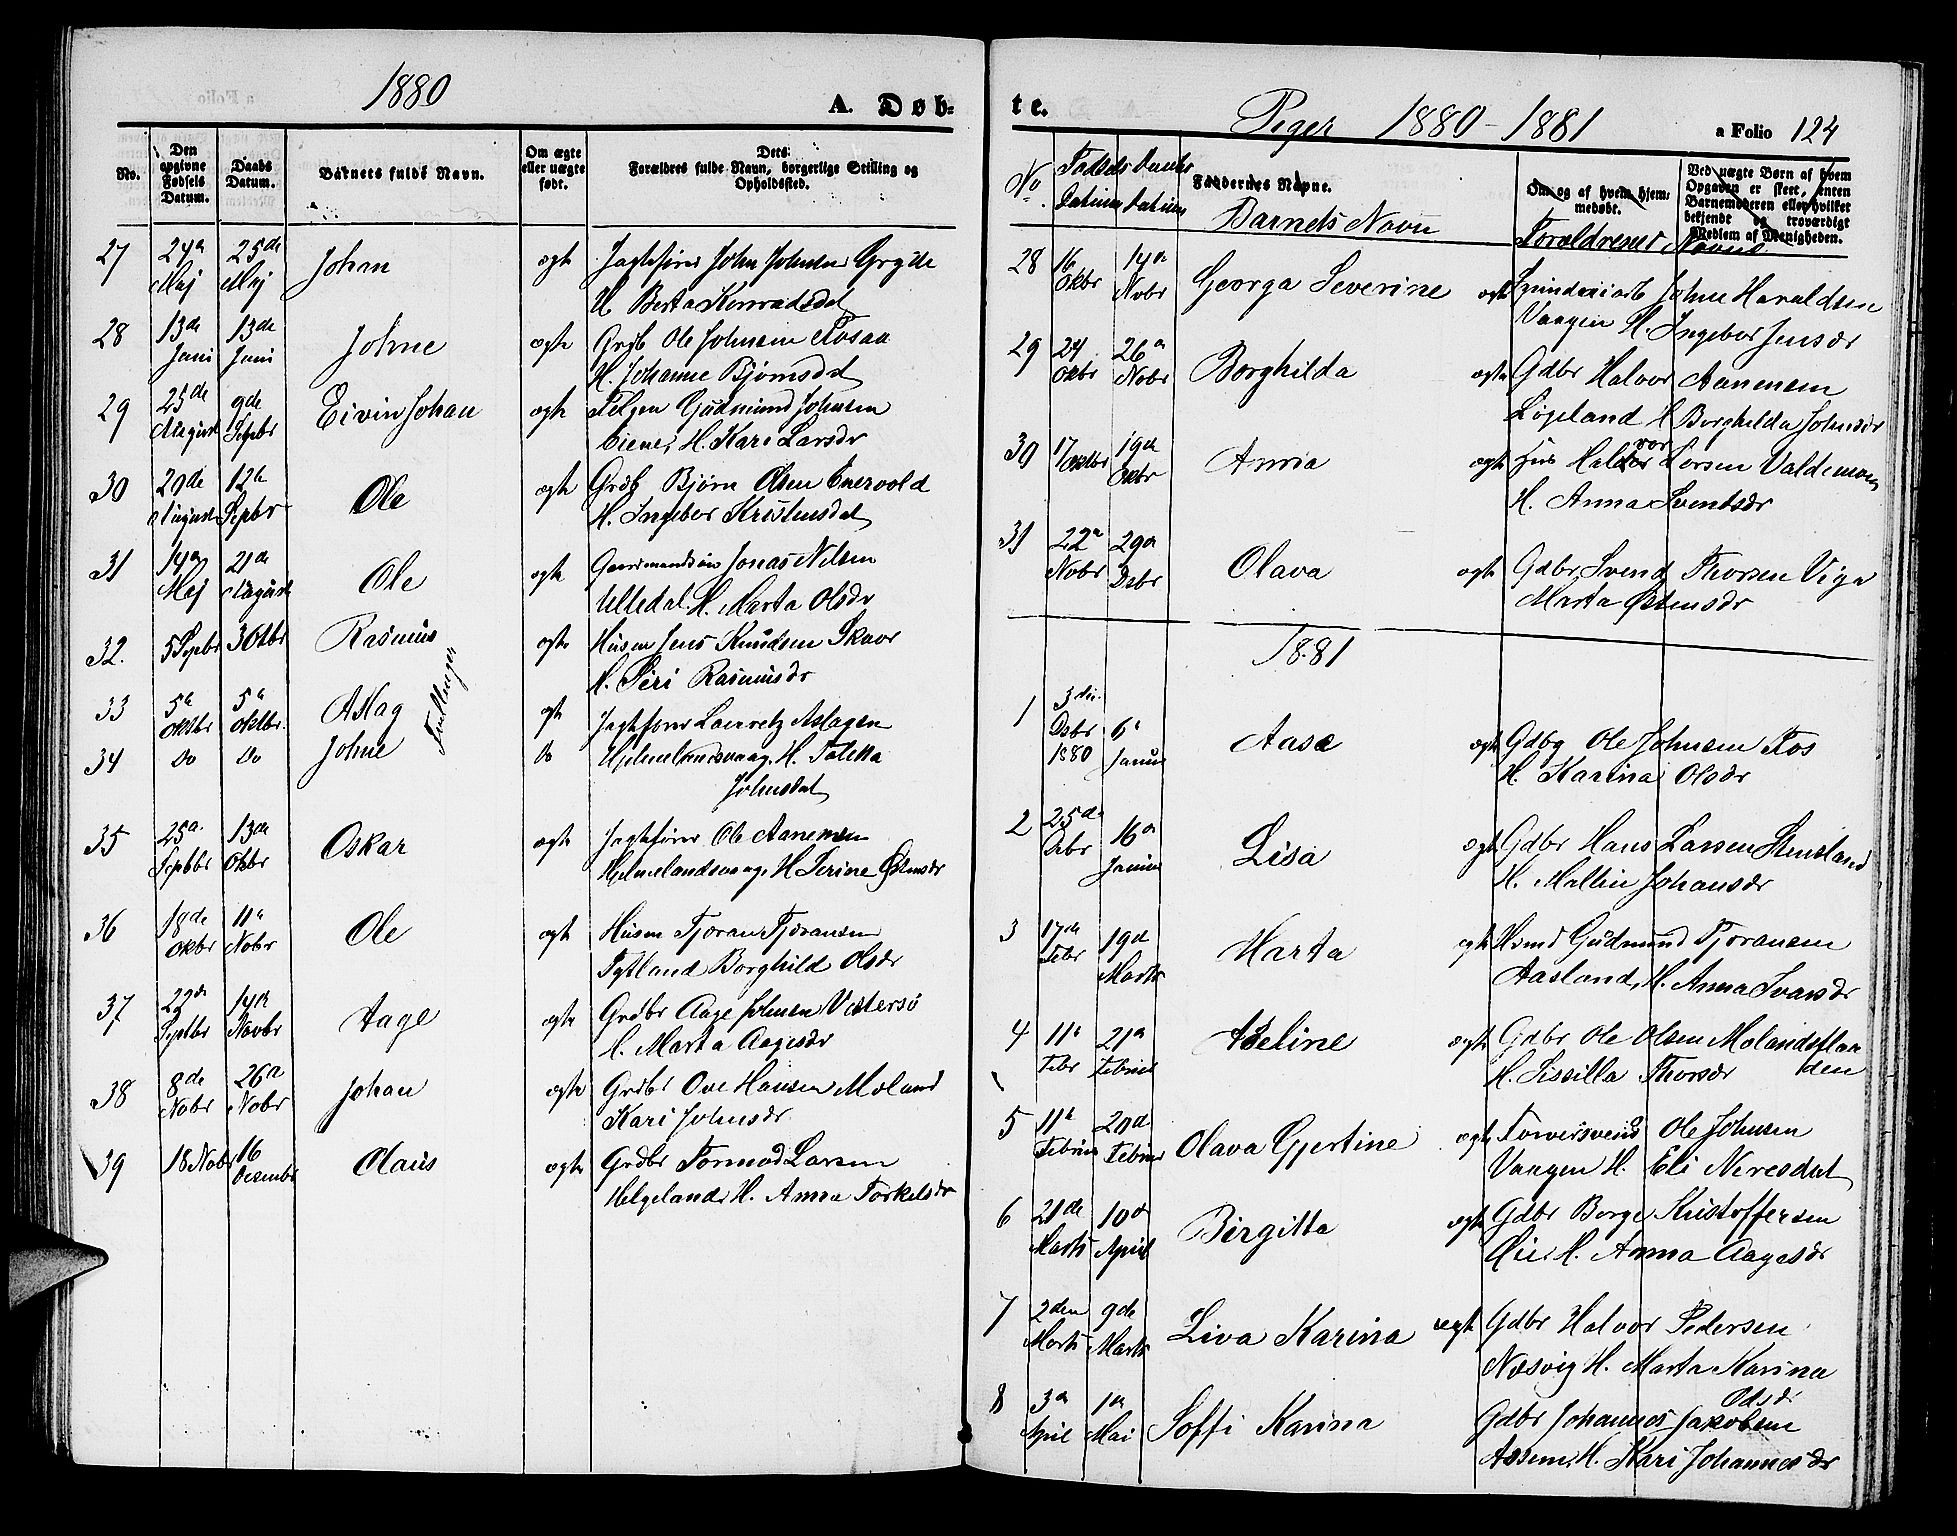 1880
A. Døb-
No.
Den opgivne Fødsels Datum.
Daabs Datum.
Barnets fulde Navn.
Om ægte eller uægte født.
Forældres fulde Navn, Dets borgerlige Stilling og Opholdssted.
27 24de Maj 25de Maj Johan ægte Jagtefører John Johnsen Gryde
H. Berta Konradsdat
28 13de Juni 13de Juni Johne ægte Grdb Ole Johnsen Fosaa
H. Johanne Bjørnsdat
29 25de August 9de Septbr Eivin Johan ægte Gudmund Johnsen
H. Kari Larsdr
30 29de August 12te Septbr Ole ægte Grdb Bjørn Olsen Enervold
H. Ingebor Kristensdat
31 14de Maj 21de August Ole ægte Gaardmandsøn Jonas Nilsen
Ulledal. H. Marta Olsdr
32. 5 Septbr 3 Otbr Rasmus ægte Husm Jens Knudsen Skaar
H. Siri Rasmusdr
33 5te Oktbr 5te Oktbr. Aslag Tvillinger ægt Jagtfører Lauretz Aslagsen
34 Do Do Johne Do Hjelmelandsvaag. H. Taletta
Johnsdat
35 25de Septbr 13de Oktbr Oskar ægte Jagtefører Ole Aanensen
Hjelmelandsvaag. H Serine Østensdr
36 18de Oktbr 11te Nobr Ole ægte Husm Tjøran Tjøransen
Tytland Borghild Olsdr
37 22de Septbr 14de Novbr Aage ægte Grdbr Aage Johnsen Vestersø
H. Marta Aagesdr
38 8de Nobr 26de Nobr Johan ægte Grdbr Ove Hansen Moland
Kari Johnsdr
39 18 Nobr 16 Desembr Olaus ægte Grdbr Tormod Larsen
Helgeland. H. Anna Torkelsdr
te.
Piger 1880-1881
a Folio 124
No.
Fødsels Datum
Daabs Datum
Faddernes Navne.
Barnets Navn
Om og af hvem hjemmedøbt.
Forældrenes Navne
Ved uægte Børn af hvem Opgaven er skeet, enten Barnemoderen eller hvilket bekjendt og troværdigt Medlem af Menigheden.
28 16 Okbr 14de Nobr Georga Severine ægte Spinderiarb John Haraldsen
Vaagen H. Ingebor Jensdr
29 24 Okbr 26de Nobr Borghilda ægte Gdbr Halvor Aanensen
Løgeland H Borghilda Johnsdr
30 17 Oktbr 19de Okbr Anna ægte Hus Halvor Larsen Valdemoen
H. Anna Svendsdr
31 22de Nobr 29de Dsbr Olava ægte Gdbr Svend Thorsen Viga
Marta Østensdr
1881
1 3die Dsbr 1880 6te Januar Aasa ægte Gdbg Ole Johnsen Fos
H. Karina Olsdr
2 25de Dsbr 16de Januar Lisa ægte Gdbr Hans Larsen Stensland
H. Mallin Johansdr
3 17de Febr 19de Marts Marta ægte Hsmd Gudmund Tjøransen
Aasland, H. Anna Ivarsdr
4 11te Febr 21de Februar Adeline ægte Gdbr Ole Olsen Molandsflaa
den
H. Sissilla Thorsdr
5 11te Februar 20de Februar Olava Gjertine ægte Farversvend Ole Johnsen
Vaagen H. Eli Neresdat
6 21de Marts 10de April Birgitta ægte Gdbr Borge Kristoffersen
Øie, H. Anna Aagesdr
7 2den Marts 9de Marts Liva Karina ægte Gdbr Halvor Pedersen
Næsvig H. Marta Karina
Odsdr.
8 3de April 1ste Mai Soffi Karina Gdbr Johannes Jakobsen
Assem, H. Kari Johannesdr